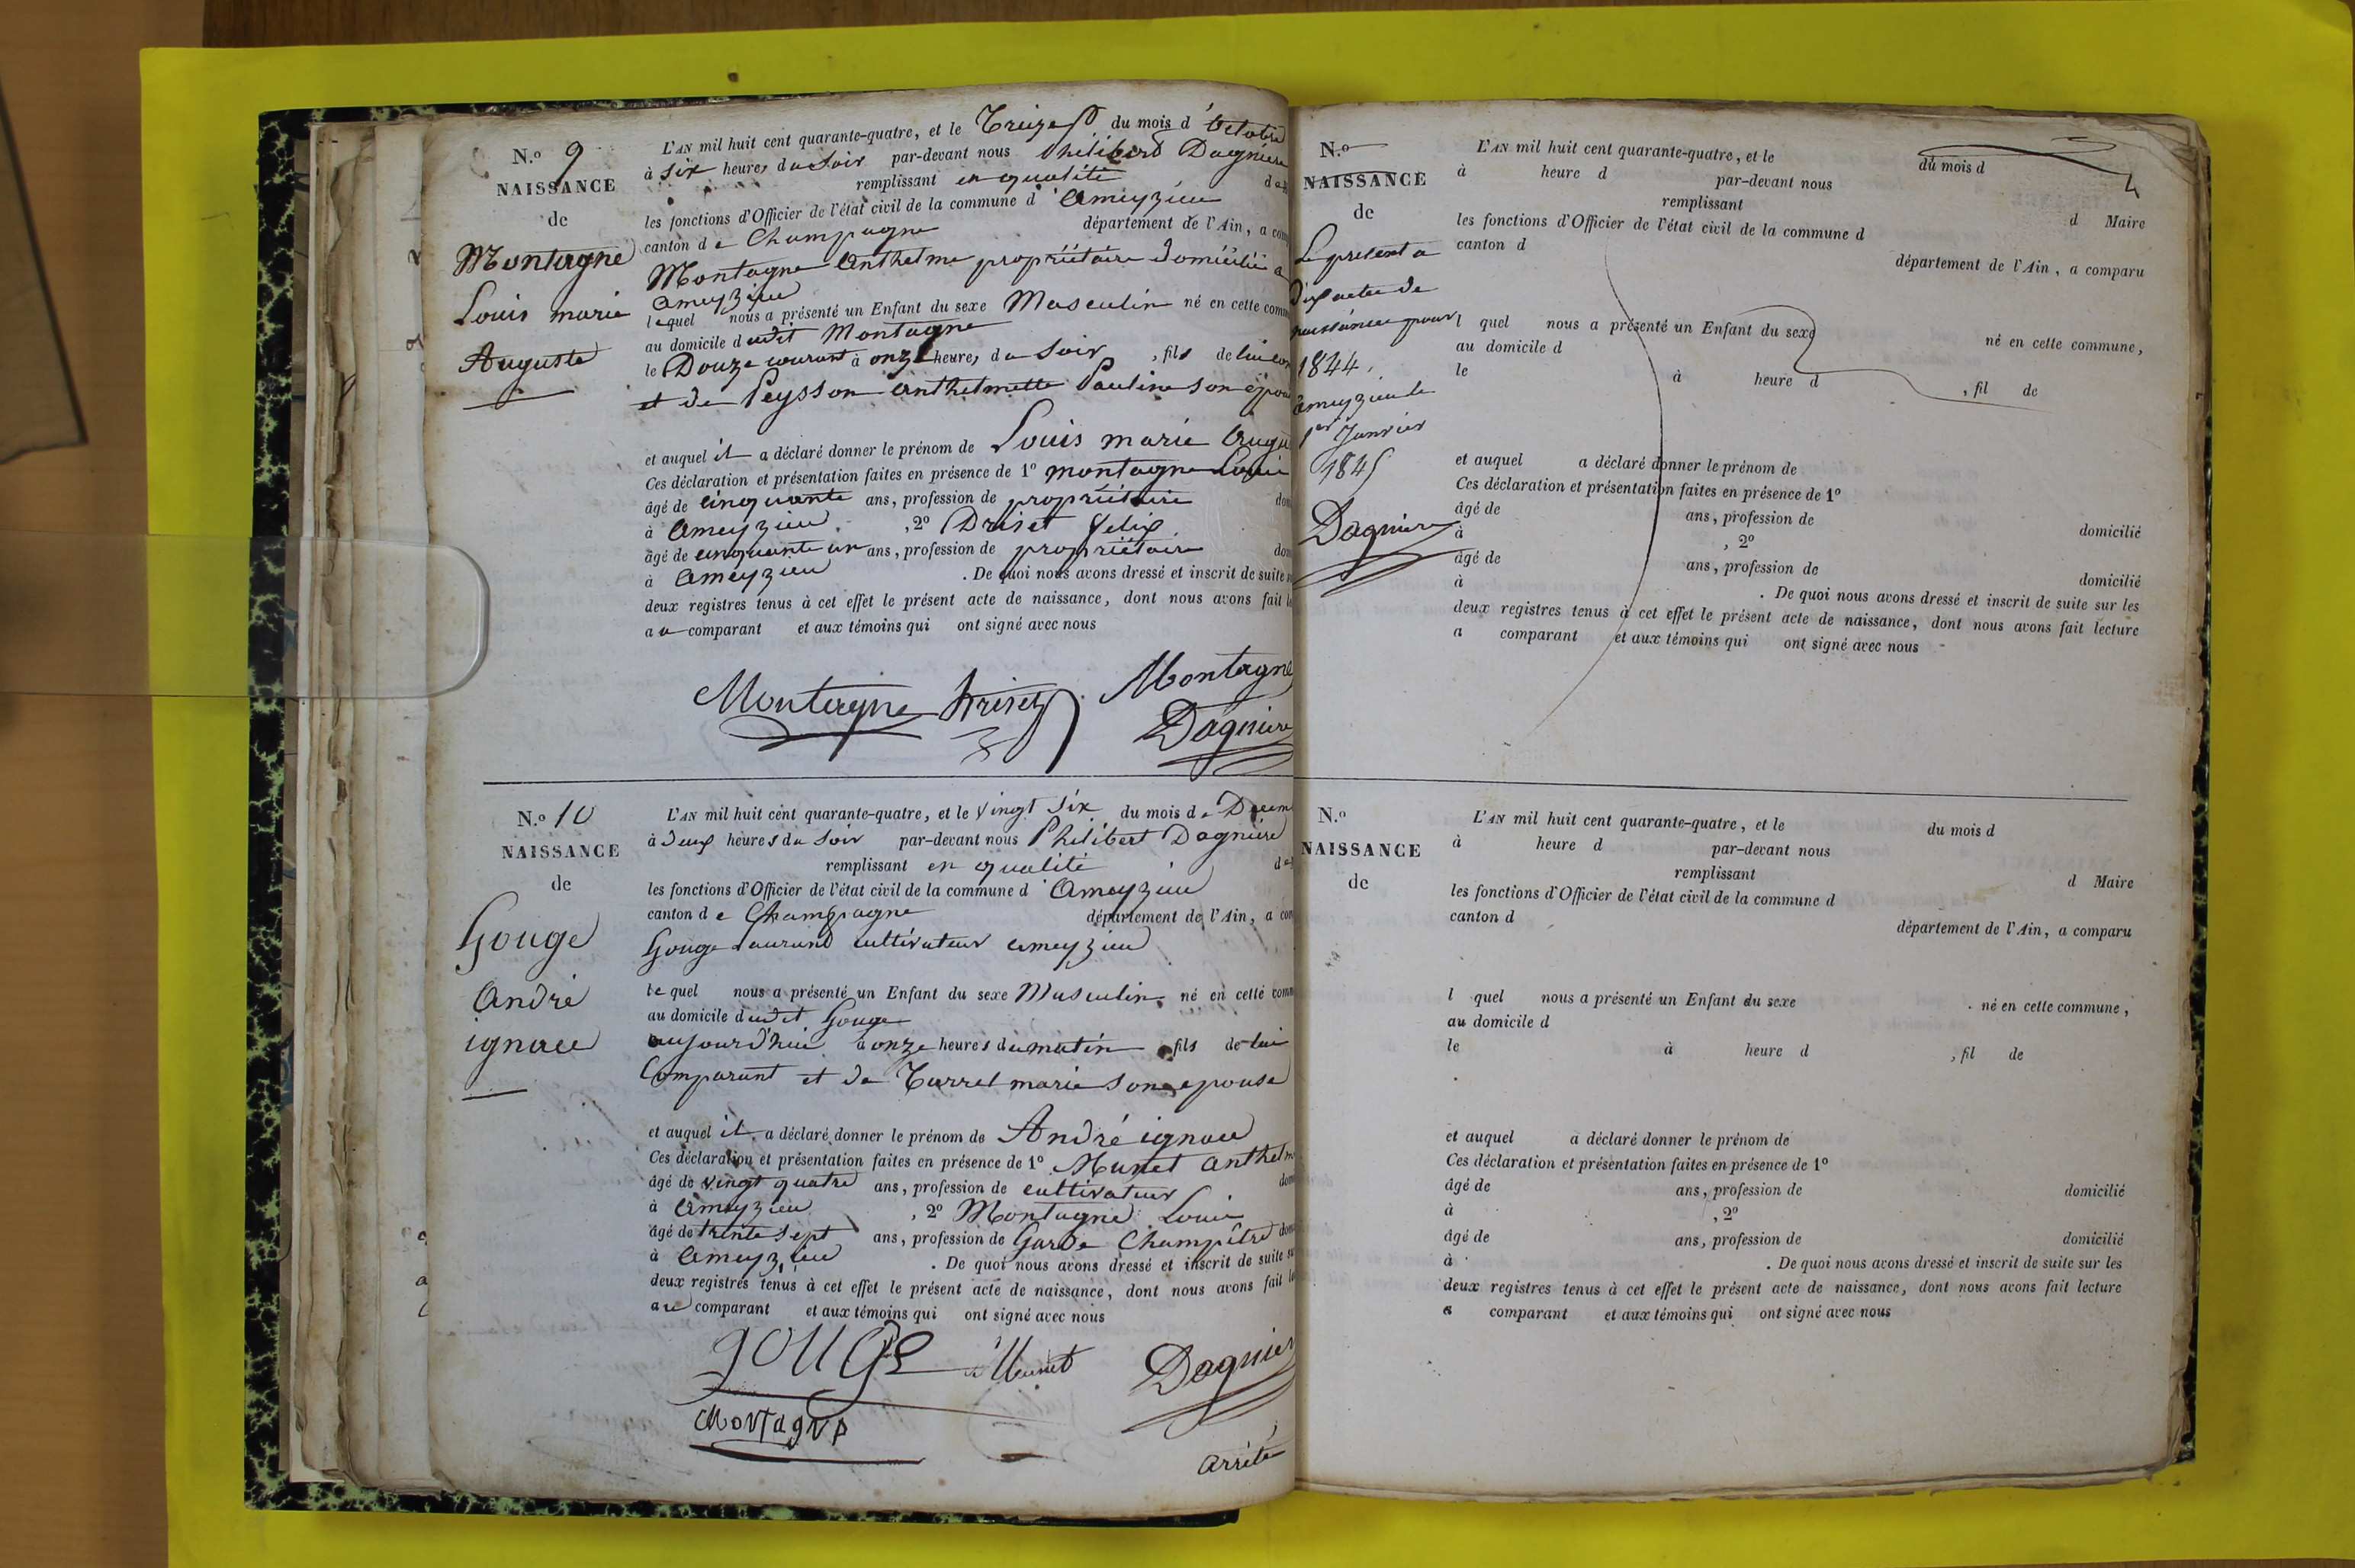 N.o 9
NAISSANCE
de
Montagne
Louis marie
Auguste
L'AN mil huit cent quarante-quatre, et le Treize du mois d'Octobre
à six heures du soir par-devant nous Philibert Dagnière
remplissant en qualité de
les fonctions d'Officier de l'état civil de la commune d'Ameyzieu
canton de Champagne département de l'Ain, a com
Montagne Anthelme propriétaire domicilié a
ameyzieu
lequel nous a présenté un Enfant du sexe Masculin né en cette comm
au domicile dudit Montagne
le Douze courant à onze heures du soir, fils de lui com
et de Peysson Anthelmette Pauline son épou
et auquel il a déclaré donner le prénom de Louis marie Augu
Ces déclaration et présentation faites en présence de 1º montagne Louis
âgé de cinquante ans, profession de propriétaire dom
à Ameyzieu, 2º Driset felix
âgé de cinquante un ans, profession de propriétaire dom
à Ameyzieu . De quoi nous avons dressé et inscrit de suite s
deux registres tenus à cet effet le présent acte de naissance, dont nous avons fait le
au comparant et aux témoins qui ont signé avec nous
Montagne Driset Montagne
Dagnière
N.o 10
NAISSANCE
de
Gouge
André
ignace
L'AN mil huit cent quarante-quatre, et le vingt six du mois de Décem
à deux heures du soir par-devant nous Philibert Dagnière
remplissant en qualité de
les fonctions d'Officier de l'état civil de la commune d'Ameyzieu
canton de Champagne département de l'Ain, a com
Gouge Laurand cultivateur ameyzieu
lequel nous a présenté un Enfant du sexe Masculin né en cette comm
au domicile dudit Gouge
aujourd'hui à onze heures du matin fils de lui
Comparant et de Turrel marie son epouse
et auquel il a déclaré donner le prénom de André ignace
Ces déclaration et présentation faites en présence de 1º Munet Anthelm
âgé de vingt quatre ans, profession de cultivateur dom
à Ameyzieu, 2º Montagne Louis
âgé de trente sept ans, profession de Garde Champêtre dom
à Ameyzieu . De quoi nous avons dressé et inscrit de suite su
deux registres tenus à cet effet le présent acte de naissance, dont nous avons fait le
au comparant et aux témoins qui ont signé avec nous
gouge Munet Dagnier
Montagne
Arrêté
N.o
NAISSANCE
de
Le présent a
dix actes de
naissance pour
1844.
Ameyzieu le
1er Janvier
1845
Dagnière
L'AN mil huit cent quarante-quatre, et le du mois d
à heure d par-devant nous
remplissant d Maire
les fonctions d'Officier de l'état civil de la commune d
canton d département de l'Ain, a comparu
l quel nous a présenté un Enfant du sexe né en cette commune,
au domicile d
le à heure d , fil de
et auquel a déclaré donner le prénom de
Ces déclaration et présentation faites en présence de 1º
âgé de ans, profession de domicilié
à , 2º
âgé de ans, profession de domicilié
à . De quoi nous avons dressé et inscrit de suite sur les
deux registres tenus à cet effet le présent acte de naissance, dont nous avons fait lecture
a comparant et aux témoins qui ont signé avec nous
N.o
NAISSANCE
de
L'AN mil huit cent quarante-quatre, et le du mois d
à heure d par-devant nous
remplissant d Maire
les fonctions d'Officier de l'état civil de la commune d
canton d département de l'Ain, a comparu
l quel nous a présenté un Enfant du sexe né en cette commune,
au domicile d
le à heure d , fil de
et auquel a déclaré donner le prénom de
Ces déclaration et présentation faites en présence de 1º
âgé de ans, profession de domicilié
à , 2º
âgé de ans, profession de domicilié
à . De quoi nous avons dressé et inscrit de suite sur les
deux registres tenus à cet effet le présent acte de naissance, dont nous avons fait lecture
a comparant et aux témoins qui ont signé avec nous